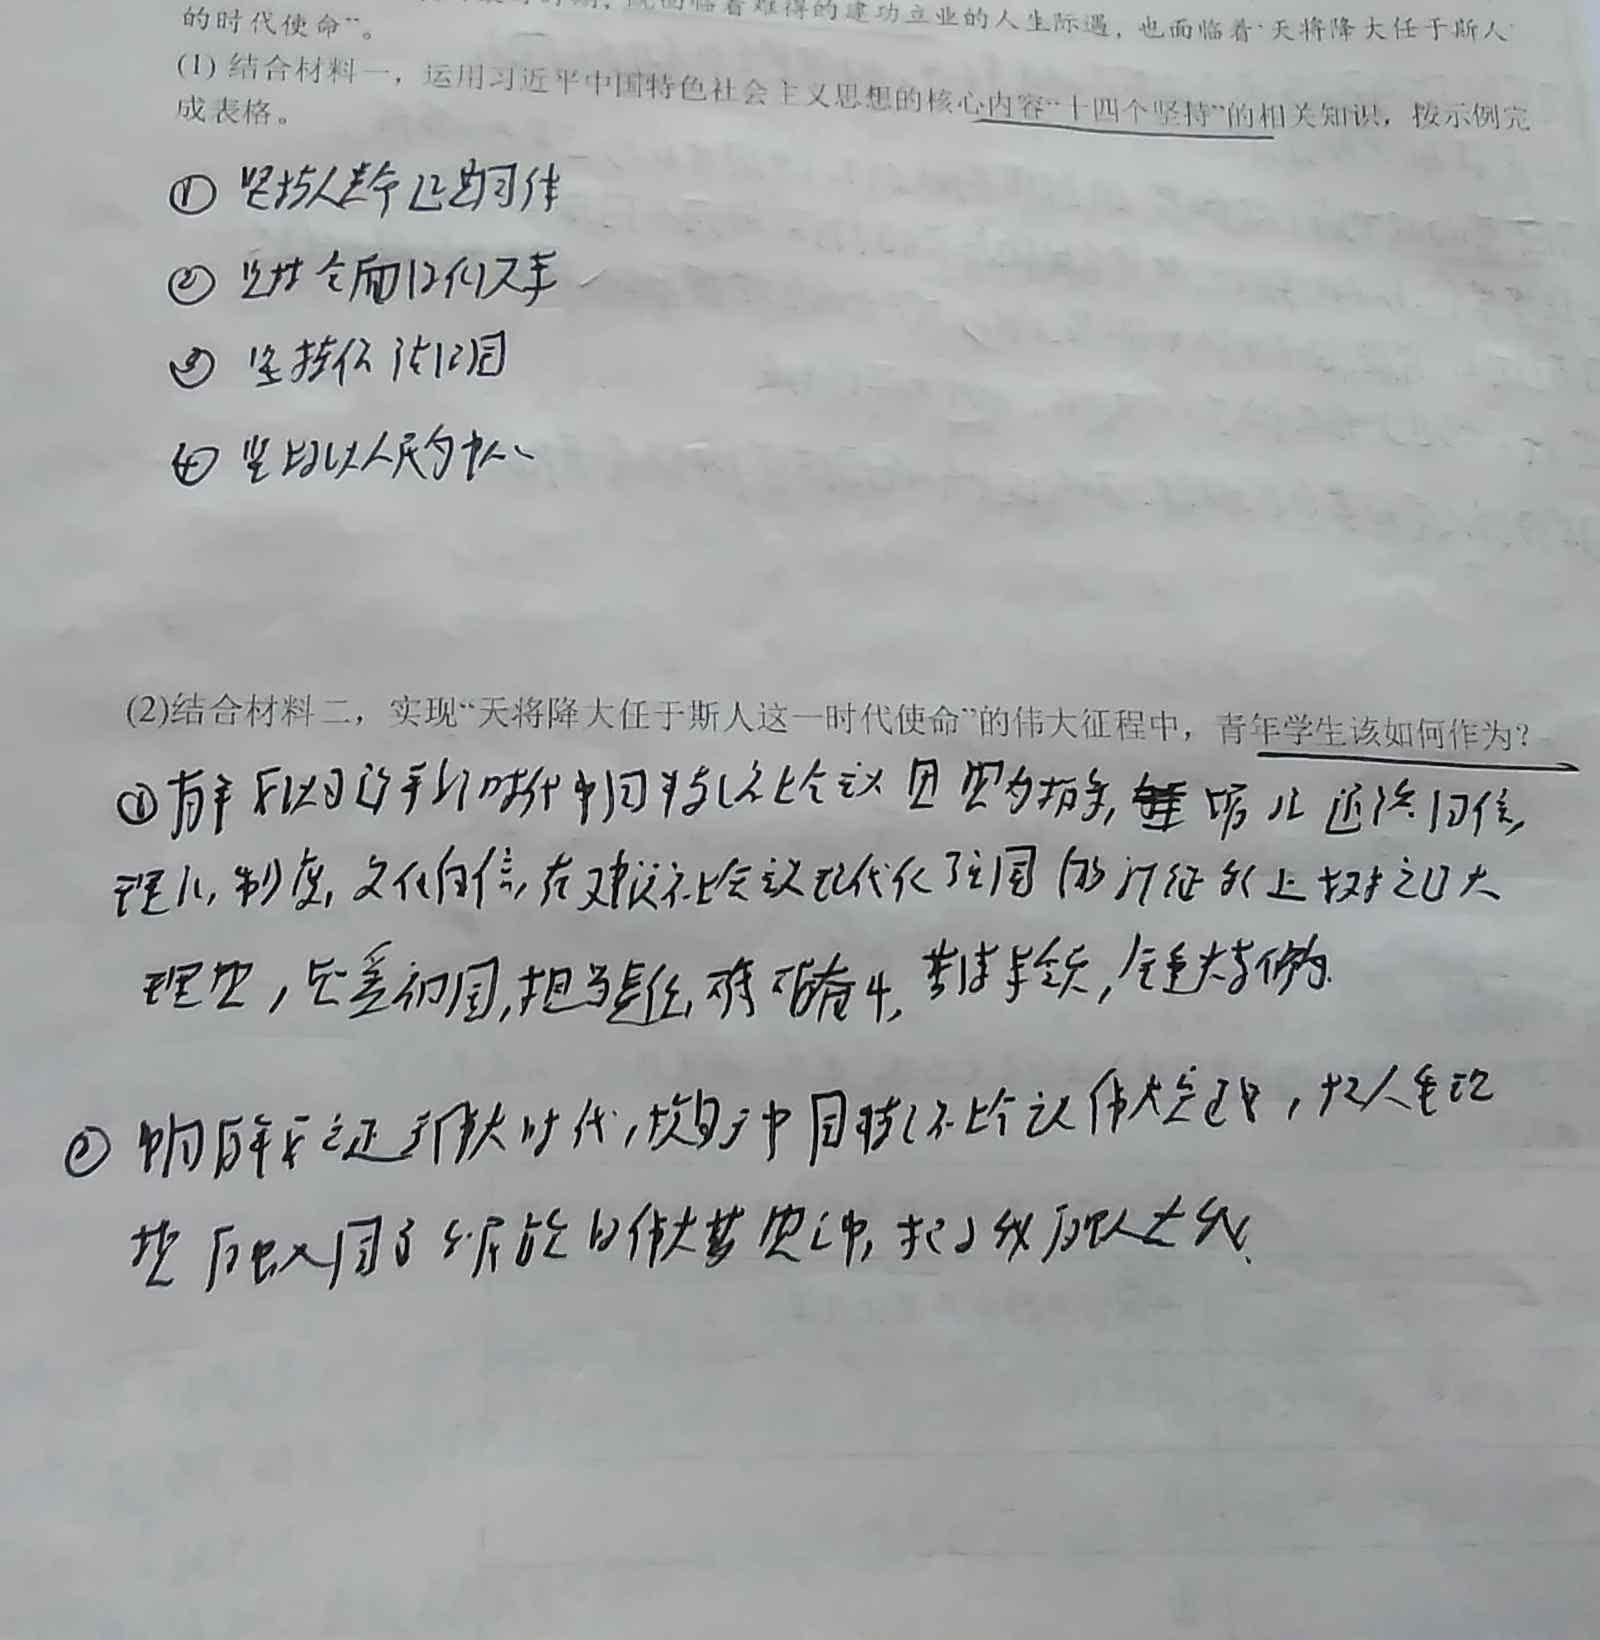 既面临着难得的建功立业的人生际遇，也面临着“天将降大任于斯人
的时代使命”。
(1) 结合材料一，运用习近平中国特色社会主义思想的核心内容“十四个坚持”的相关知识，按示例完
成表格。
① 坚持人类命运共同体
② 坚持全面从严
③ 坚持依法治国
④ 坚持以人民为中心
(2)结合材料二，实现“天将降大任于斯人这一时代使命”的伟大征程中，青年学生该如何作为？
① 青年要以习近平新时代中国特色社会主义思想为指导，增强道路自信，
理论，制度，文化自信，在建设社会主义现代化强国的新征程上树立远大
理想，热爱祖国，担当责任，艰苦奋斗，
② 中国青年要立足于伟大时代，投身于中国特色社会主义伟大实践中，把人生理
想融入国家 民族的伟大梦想之中，把小我融入大我。